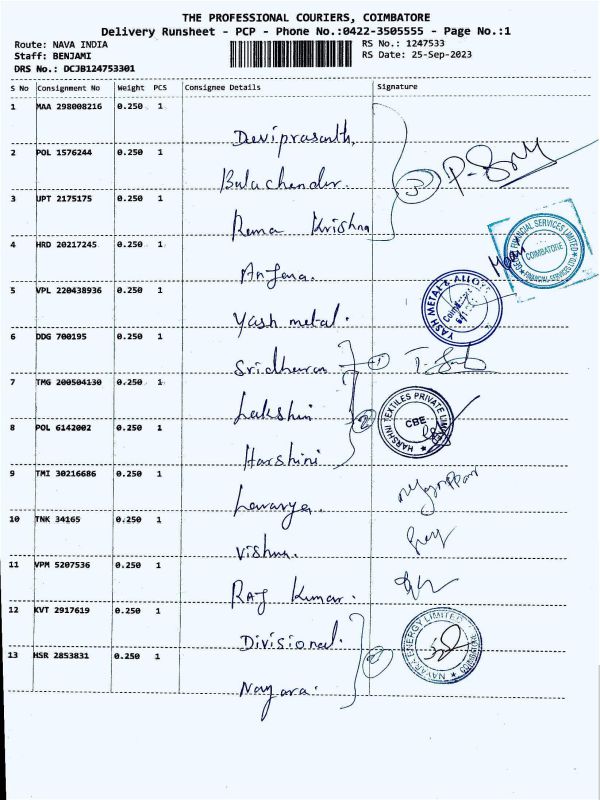 THE PROFESSIONAL COURIERS, COIMBATORE
Delivery Runsheet - PCP - Phone No.:0422-3505555 - Page No.:1
Route: NAVA INDIA
RS No.: 1247533
Staff: BENJAMI
RS Date: 25-Sep-2023
DRS No.: DCJB124753301
S No Consignment No Weight PCS Consignee Details Signature
1 MAA 298008216 0.250 1
Deviprasanth,
2 POL 1576244 0.250 1
Balachander.
3 P. 
3 UPT 2175175 0.250 1
Rama Krishna
4 HRD 20217245 0.250 1
Anjana.
FINANCIAL SERVICES LIMITED
COIMBATORE
5 VPL 220438936 0.250 1
Yash metal.
YASH METAL & ALLOYS
6 DDG 700195 0.250 1
Sridharan 1
7 TMG 200504130 0.250 1
Lakshmi
2
HARSHNI TEXTILES PRIVATE LIMITED
CBE
8 POL 6142002 0.250 1
Harshini
9 TMI 30216686 0.250 1
Lavanya.
10 TNK 34165 0.250 1
Vishnu.
11 VPM 5207536 0.250 1
Raj Kumar.
12 KVT 2917619 0.250 1
Divisional.
2
NAYARA ENERGY LIMITED
COIMBATORE
13 HSR 2853831 0.250 1
Nayara.